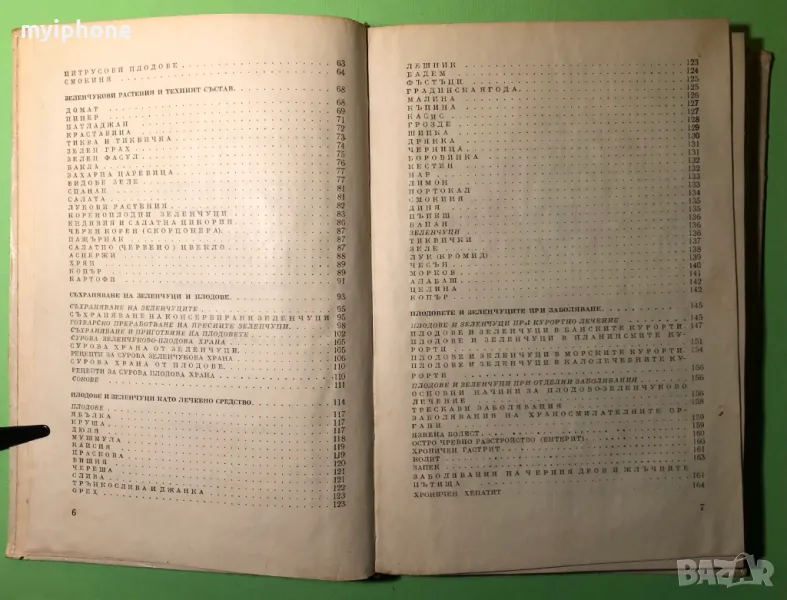 myiphone
ЦИТРУСОВИ ПЛОДОВЕ 63
СМОКИНЯ 64
ЗЕЛЕНЧУКОВИ РАСТЕНИЯ И ТЕХНИЯТ СЪСТАВ. 68
ДОМАТ 68
ПИПЕР 69
ПАТЛАДЖАН 71
КРАСТАВИЦА 72
ТИКВА И ТИКВИЧКА 73
ЗЕЛЕН ГРАХ 74
ЗЕЛЕН ФАСУЛ 75
БАКЛА 76
ЗАХАРНА ЦАРЕВИЦА 77
ВИДОВЕ ЗЕЛЕ 77
СПАНАК 81
САЛАТА 81
ЛУКОВИ РАСТЕНИЯ 82
КОРЕНОПЛОДНИ ЗЕЛЕНЧУЦИ 83
ЕНДИВИЯ И САЛАТНА ЦИКОРИЯ 86
ЧЕРЕН КОРЕН (СКОРЦОНЕРА) 87
ПАЩЪРНАК 87
САЛАТНО (ЧЕРВЕНО) ЦВЕКЛО 87
АСПЕРЖИ 88
ХРЯН 89
КОПЪР 89
КАРТОФИ 91
СЪХРАНЯВАНЕ НА ЗЕЛЕНЧУЦИ И ПЛОДОВЕ. 93
СЪХРАНЯВАНЕ НА ЗЕЛЕНЧУЦИТЕ 95
СЪХРАНЯВАНЕ НА КОНСЕРВИРАНИ ЗЕЛЕНЧУЦИ 95
ГОТВАРСКО ПРЕРАБОТВАНЕ НА ПРЕСНИТЕ ЗЕЛЕНЧУЦИ. 98
СЪХРАНЯВАНЕ И ПРИГОТВЯНЕ НА ПЛОДОВЕТЕ 102
СУРОВА ЗЕЛЕНЧУКОВО-ПЛОДОВА ХРАНА 105
СУРОВА ХРАНА ОТ ЗЕЛЕНЧУЦИ. 105
РЕЦЕПТИ ЗА СУРОВА ЗЕЛЕНЧУКОВА ХРАНА 106
СУРОВА ХРАНА ОТ ПЛОДОВЕ. 110
РЕЦЕПТИ ЗА СУРОВА ПЛОДОВА ХРАНА 110
СОКОВЕ 111
ПЛОДОВЕ И ЗЕЛЕНЧУЦИ КАТО ЛЕЧЕБНО СРЕДСТВО. 114
ПЛОДОВЕ
ЯБЪЛКА 117
КРУША 117
ДЮЛЯ 117
МУШМУЛА 118
КАЙСИЯ 119
ПРАСКОВА 119
ВИШНЯ 120
ЧЕРЕША 121
СЛИВА 121
ТРЪНКОСЛИВА И ДЖАНКА 122
ОРЕХ 123
123
6
ЛЕШНИК 123
БАДЕМ 124
ФЪСТЪЦИ 125
ГРАДИНСКА ЯГОДА 125
МАЛИНА 126
КЪПИНА 127
КАСИС 127
ГРОЗДЕ 128
ШИПКА 129
ДРЯНКА 130
ЧЕРНИЦА 131
БОРОВИНКА 131
КЕСТЕН 132
НАР 133
ЛИМОН 133
ПОРТОКАЛ 133
СМОКИНЯ 134
ДИНЯ 135
ПЪПЕШ 135
БАНАН 136
ЗЕЛЕНЧУЦИ 136
ТИКВИЧКИ 137
ЗЕЛЕ 138
ЛУК (КРОМИД) 139
ЧЕСЪН 140
МОРКОВ 141
АЛАБАШ 142
ЦЕЛИНА 142
КОПЪР
ПЛОДОВЕТЕ И ЗЕЛЕНЧУЦИТЕ ПРИ ЗАБОЛЯВАНЕ. 145
ПЛОДОВЕ И ЗЕЛЕНЧУЦИ ПРИ КУРОРТНО ЛЕЧЕНИЕ 145
ПЛОДОВЕ И ЗЕЛЕНЧУЦИ В БАНСКИТЕ КУРОРТИ 147
ПЛОДОВЕ И ЗЕЛЕНЧУЦИ В ПЛАНИНСКИТЕ КУ-
РОРТИ 151
ПЛОДОВЕ И ЗЕЛЕНЧУЦИ В МОРСКИТЕ КУРОРТИ 154
ПЛОДОВЕ И ЗЕЛЕНЧУЦИ В КАЛОЛЕЧЕБНИТЕ КУ-
РОРТИ 156
ПЛОДОВЕ И ЗЕЛЕНЧУЦИ ПРИ ОТДЕЛНИ ЗАБОЛЯВАНИЯ 156
ОСНОВНИ НАЧИНИ ЗА ПЛОДОВО-ЗЕЛЕНЧУКОВО
ЛЕЧЕНИЕ 156
ТРЕСКАВИ ЗАБОЛЯВАНИЯ 158
ЗАБОЛЯВАНИЯ НА ХРАНОСМИЛАТЕЛНИТЕ ОР-
ГАНИ 159
ЯЗВЕНА БОЛЕСТ 159
ОСТРО ЧРЕВНО РАЗСТРОЙСТВО (ЕНТЕРИТ) 160
ХРОНИЧЕН ГАСТРИТ 160
КОЛИТ 161
ЗАПЕК 163
ЗАБОЛЯВАНИЯ НА ЧЕРНИЯ ДРОБ И ЖЛЪЧНИТЕ
ПЪТИЩА 164
ХРОНИЧЕН ХЕПАТИТ 164
7
BAZAR